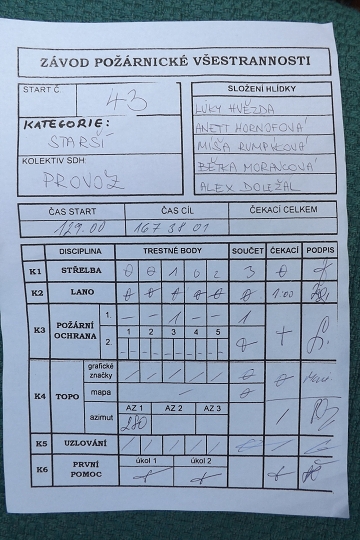 ZÁVOD POŽÁRNICKÉ VŠESTRANNOSTI
START Č 43
KATEGORIE:
STARŠÍ
KOLEKTIV SDH
PROVOZ
SLOŽENÍ HLÍDKY
LUKY HVĚZDA
ANETT HORNOFOVÁ
MÍŠA RUMPÍKOVÁ
BĚTKA MORAVCOVÁ
ALEX DOLEŽAL
ČAS START ČAS CÍL ČEKACÍ CELKEM
129.00 167 38 01
DISCIPLINA TRESTNÉ BODY SOUČET ČEKACÍ PODPIS
K1 STŘELBA 0 0 1 0 2 3 0
K2 LANO 0 0 0 0 0 0 1:00
K3 POŽÁRNÍ OCHRANA 1. – – 1 – – 1
1 2 3 4 5
2. – – – – – – – – – – 0
K4 TOPO grafické značky / / / / / 0
mapa 0
azimut AZ 1 AZ 2 AZ 3
280 /
K5 UZLOVÁNÍ / / / / /
K6 PRVNÍ POMOC úkol 1 úkol 2